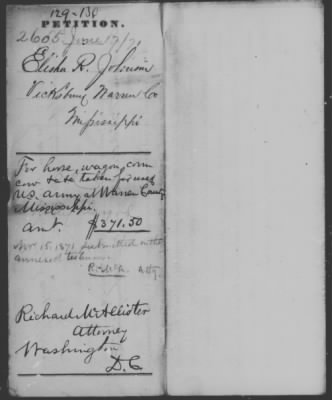 129-138
PETITION.
2605 June 17/71
Elisha R. Johnson
Vicksburg Warren Co
Mississippi
For horse, wagon, corn
cow &c &c taken for used
U.S. army at Warren County
Mississippi.
amt. $371.50
Nov. 15, 1871 submitted on the
annexed testimony
R. McA. Atty.
Richard McAllister
Attorney
Washington
D.C